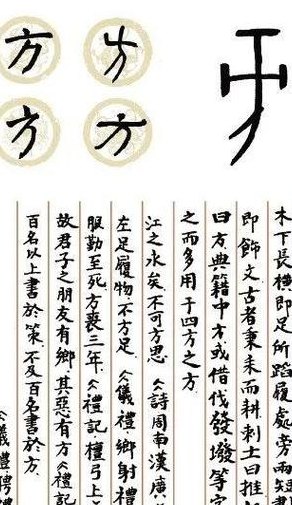 方 方
方 方
木下長橫即足所蹈履處旁兩短畫
即飾文古者秉耒而耕刺土曰推
曰方典籍中方或借伐發墢等字
之而多用于四方之方
江之永矣不可方思《詩周南漢廣
左足履物不方足《儀禮鄉射禮
服勤至死方喪三年《禮記檀弓上
故君子之朋友有鄉其惡有方《禮記
百名以上書於策不及百名書於方
《儀禮聘